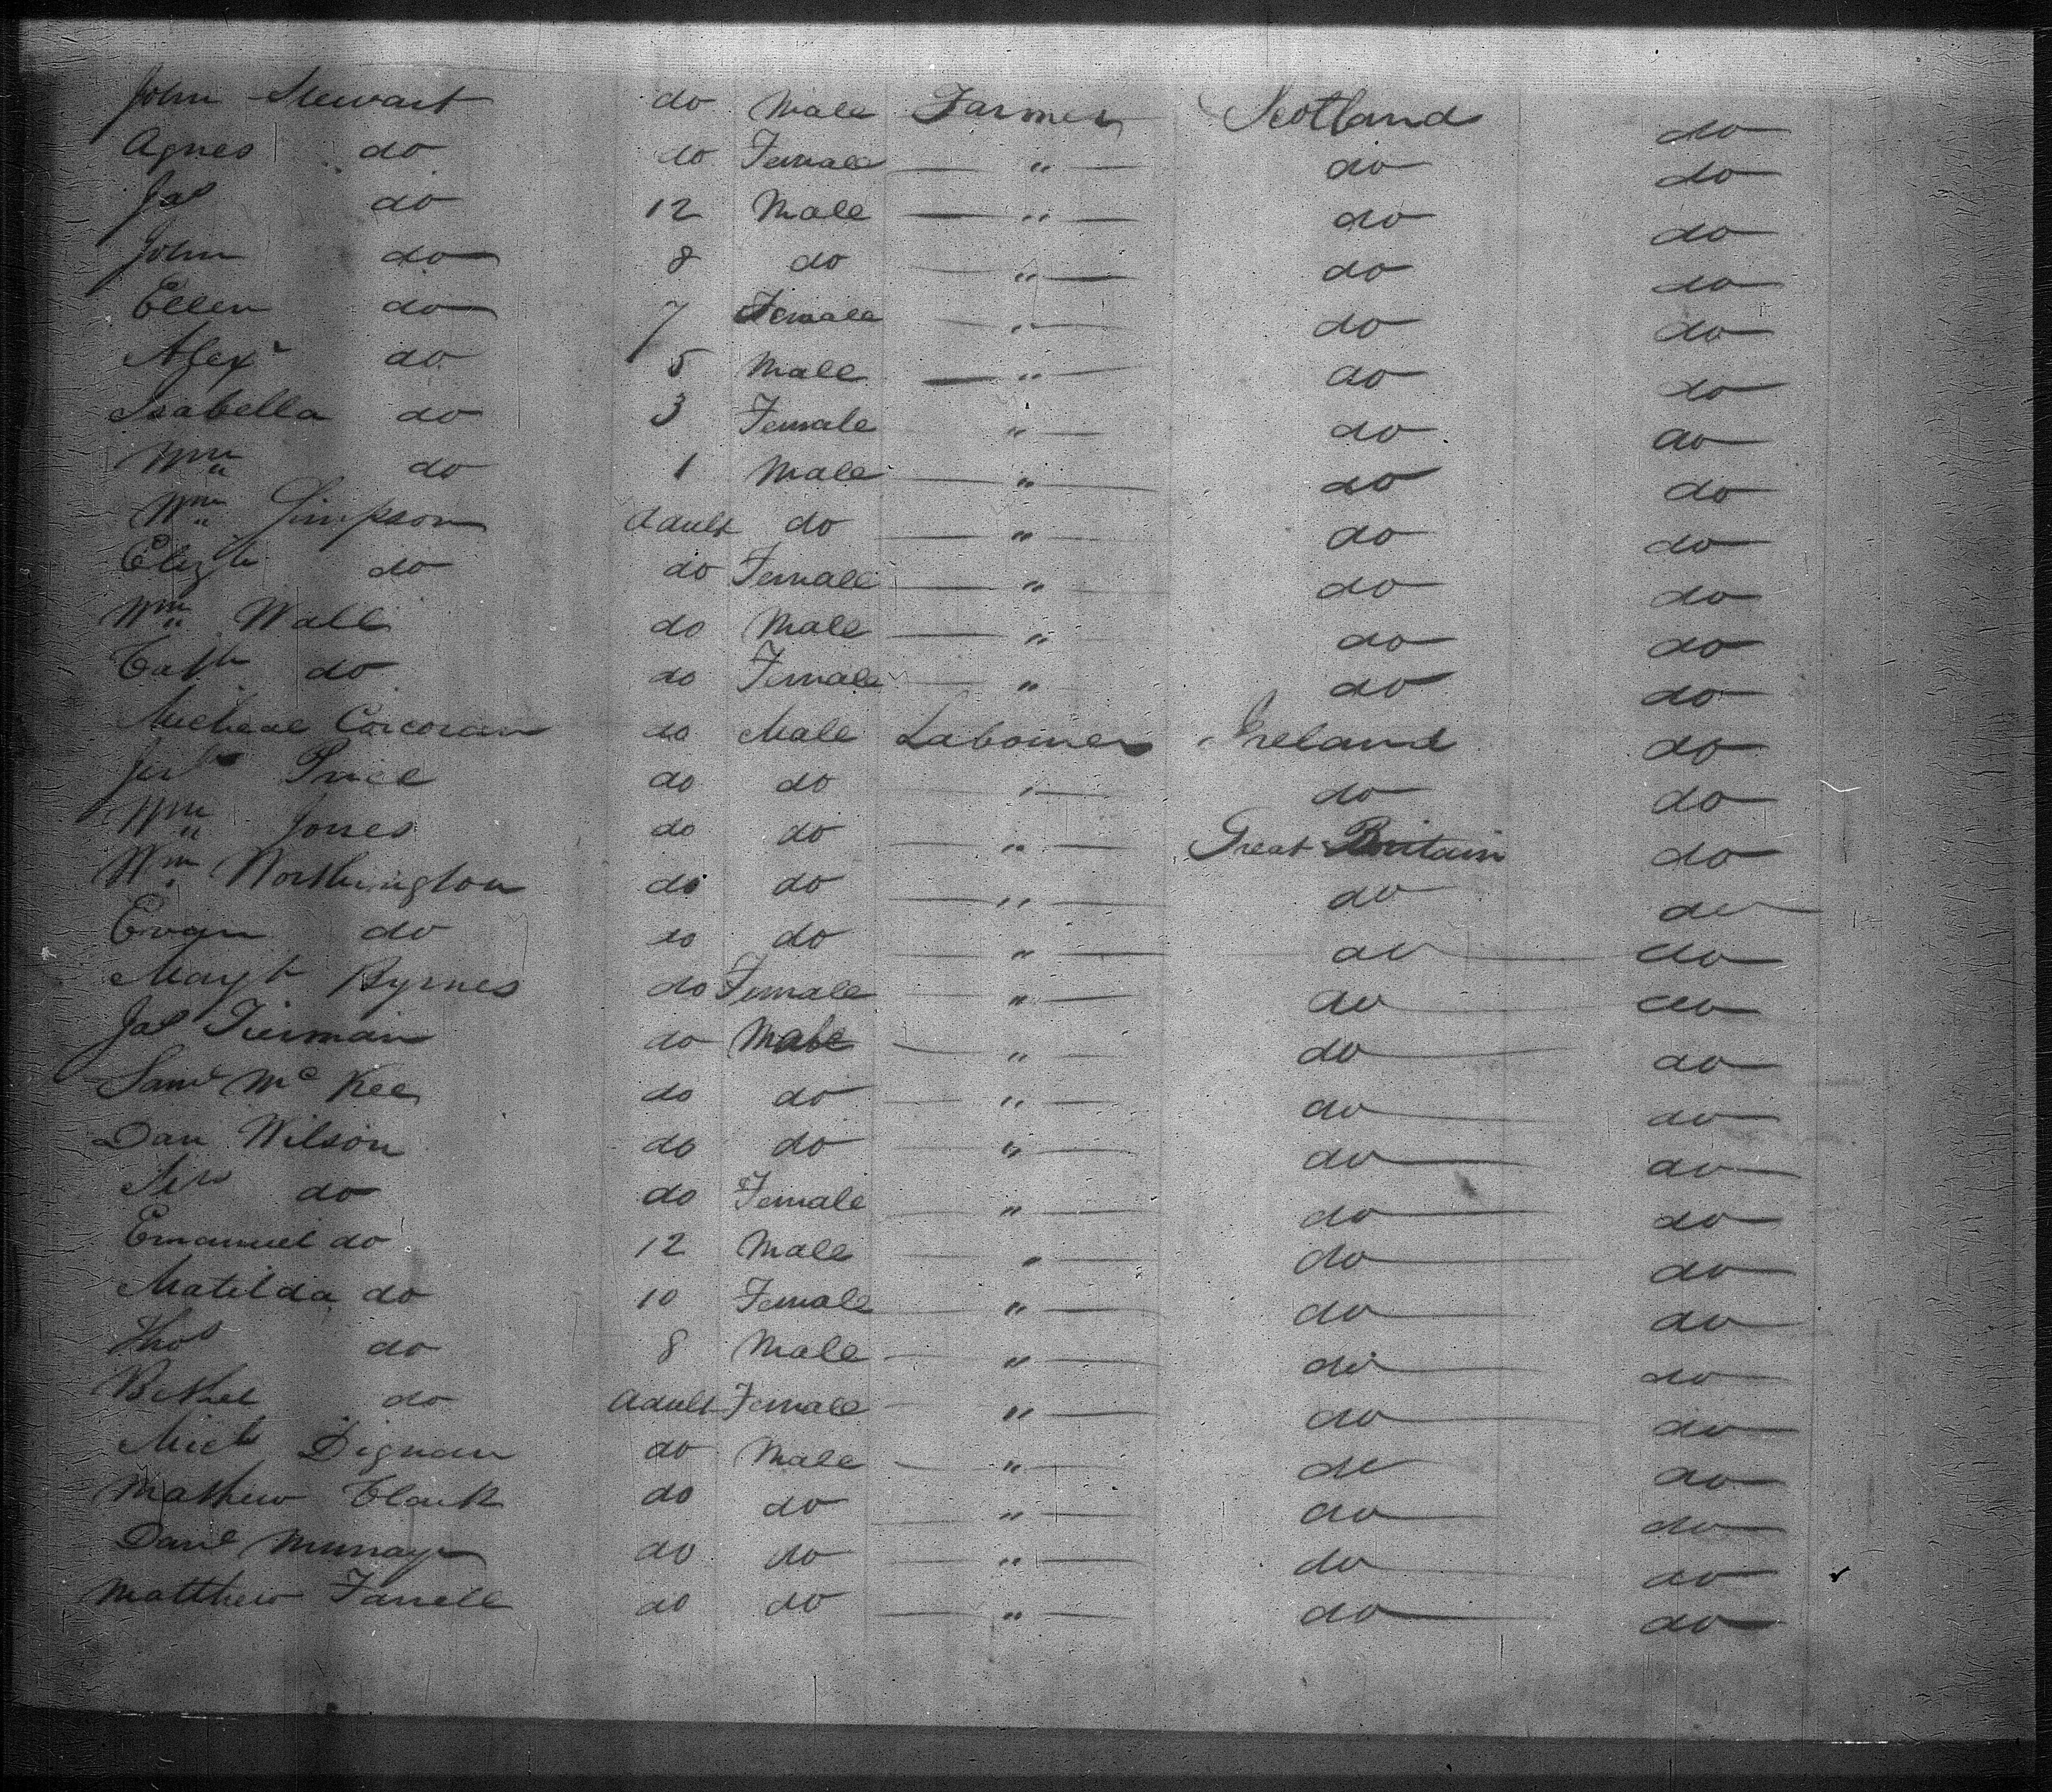 John Stewart do Male Farmer Scotland do
Agnes do do Female — " — do do
Jas do 12 Male — " — do do
John do 8 do — " — do do
Ellen do 7 Female — " — do do
Alexr do 5 Male — " — do do
Isabella do 3 Female " — do do
Wm do 1 Male — " — do do
Wm Simpson Adult do — " — do do
Elizth do do Female — " — do do
Wm Wall do Male — " — do do
Cath do do Female — " — do do
Micheal Corcoran do Male Labourer Ireland do
Price do do — " — do do
Wm Jones do do — " — Great Britain do
Wm Worthington do do — " — do do
Evan do do do — " — do do
Margt Byrnes do Female — " — do do
Jas Tiernan do Male — " — do do
Saml McKee do do — " — do do
Dan Wilson do do — " — do do
do do Female — " — do do
Emanuel do 12 Male — " — do do
Matilda do 10 Female — " — do do
Thos do 8 Male — " — do do
do Adult Female — " — do do
Michl Dignan do Male — " — do do
Mathew Clark do do — " — do do
Danl Murray do do — " — do do
Matthew Farrell do do — " — do do